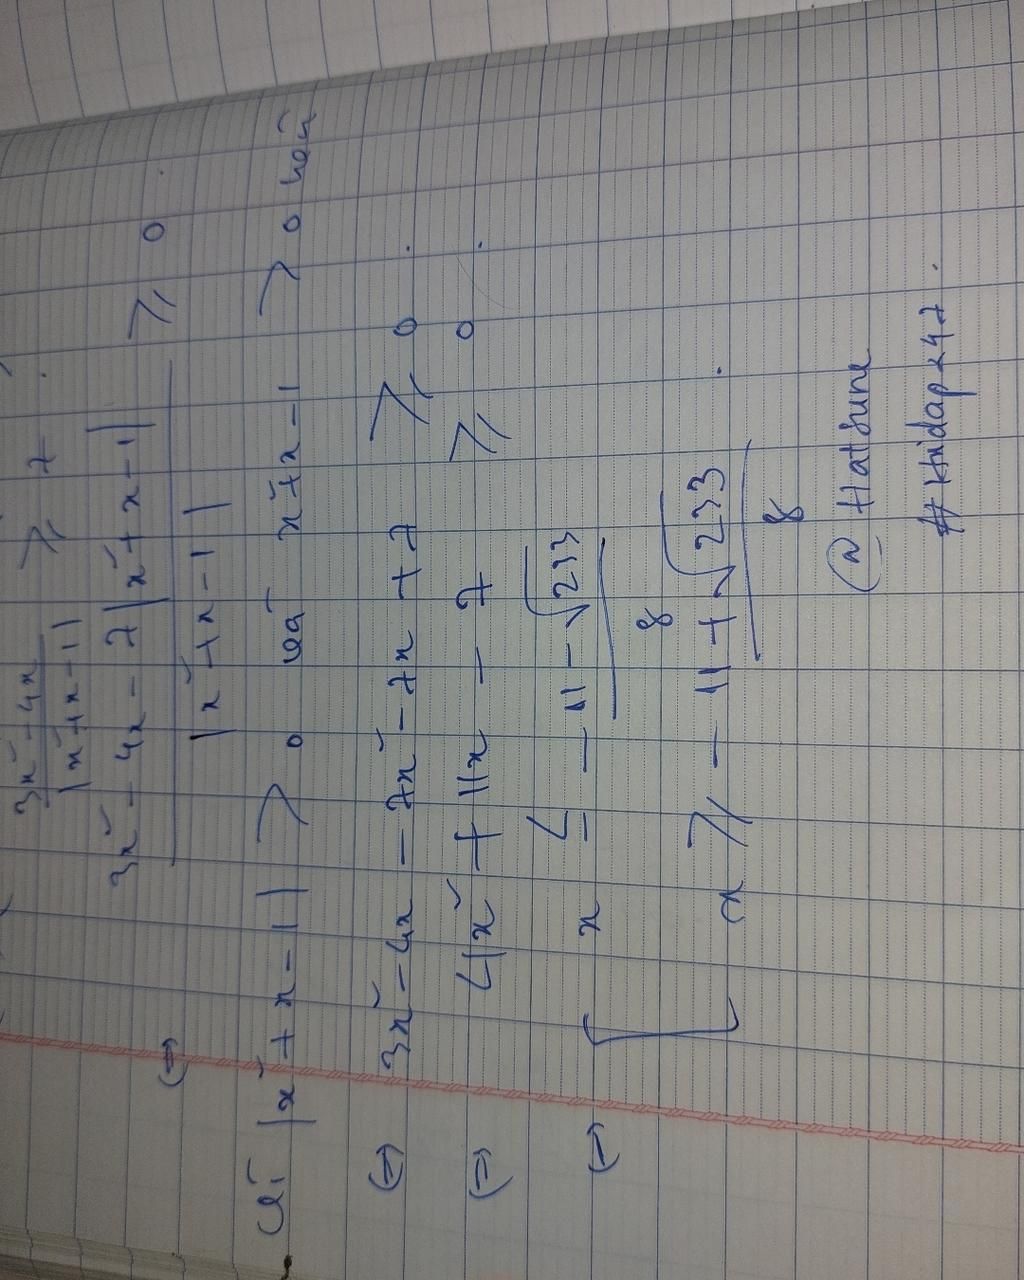 3x² - 4x / |x² + x - 1| ≥ 7.
(=) 3x² - 4x - 7|x² + x - 1| / |x² + x - 1| ≥ 0.
Vì |x² + x - 1| > 0 và x² + x - 1 > 0 nên
(=) 3x² - 4x - 7x² - 7x + 7 ≥ 0.
(=) 4x² + 11x - 7 ≥ 0.
(=) [ x ≤ -11 - √233 / 8
x ≥ -11 + √233 / 8 .
@Hatsune
#khidap247.